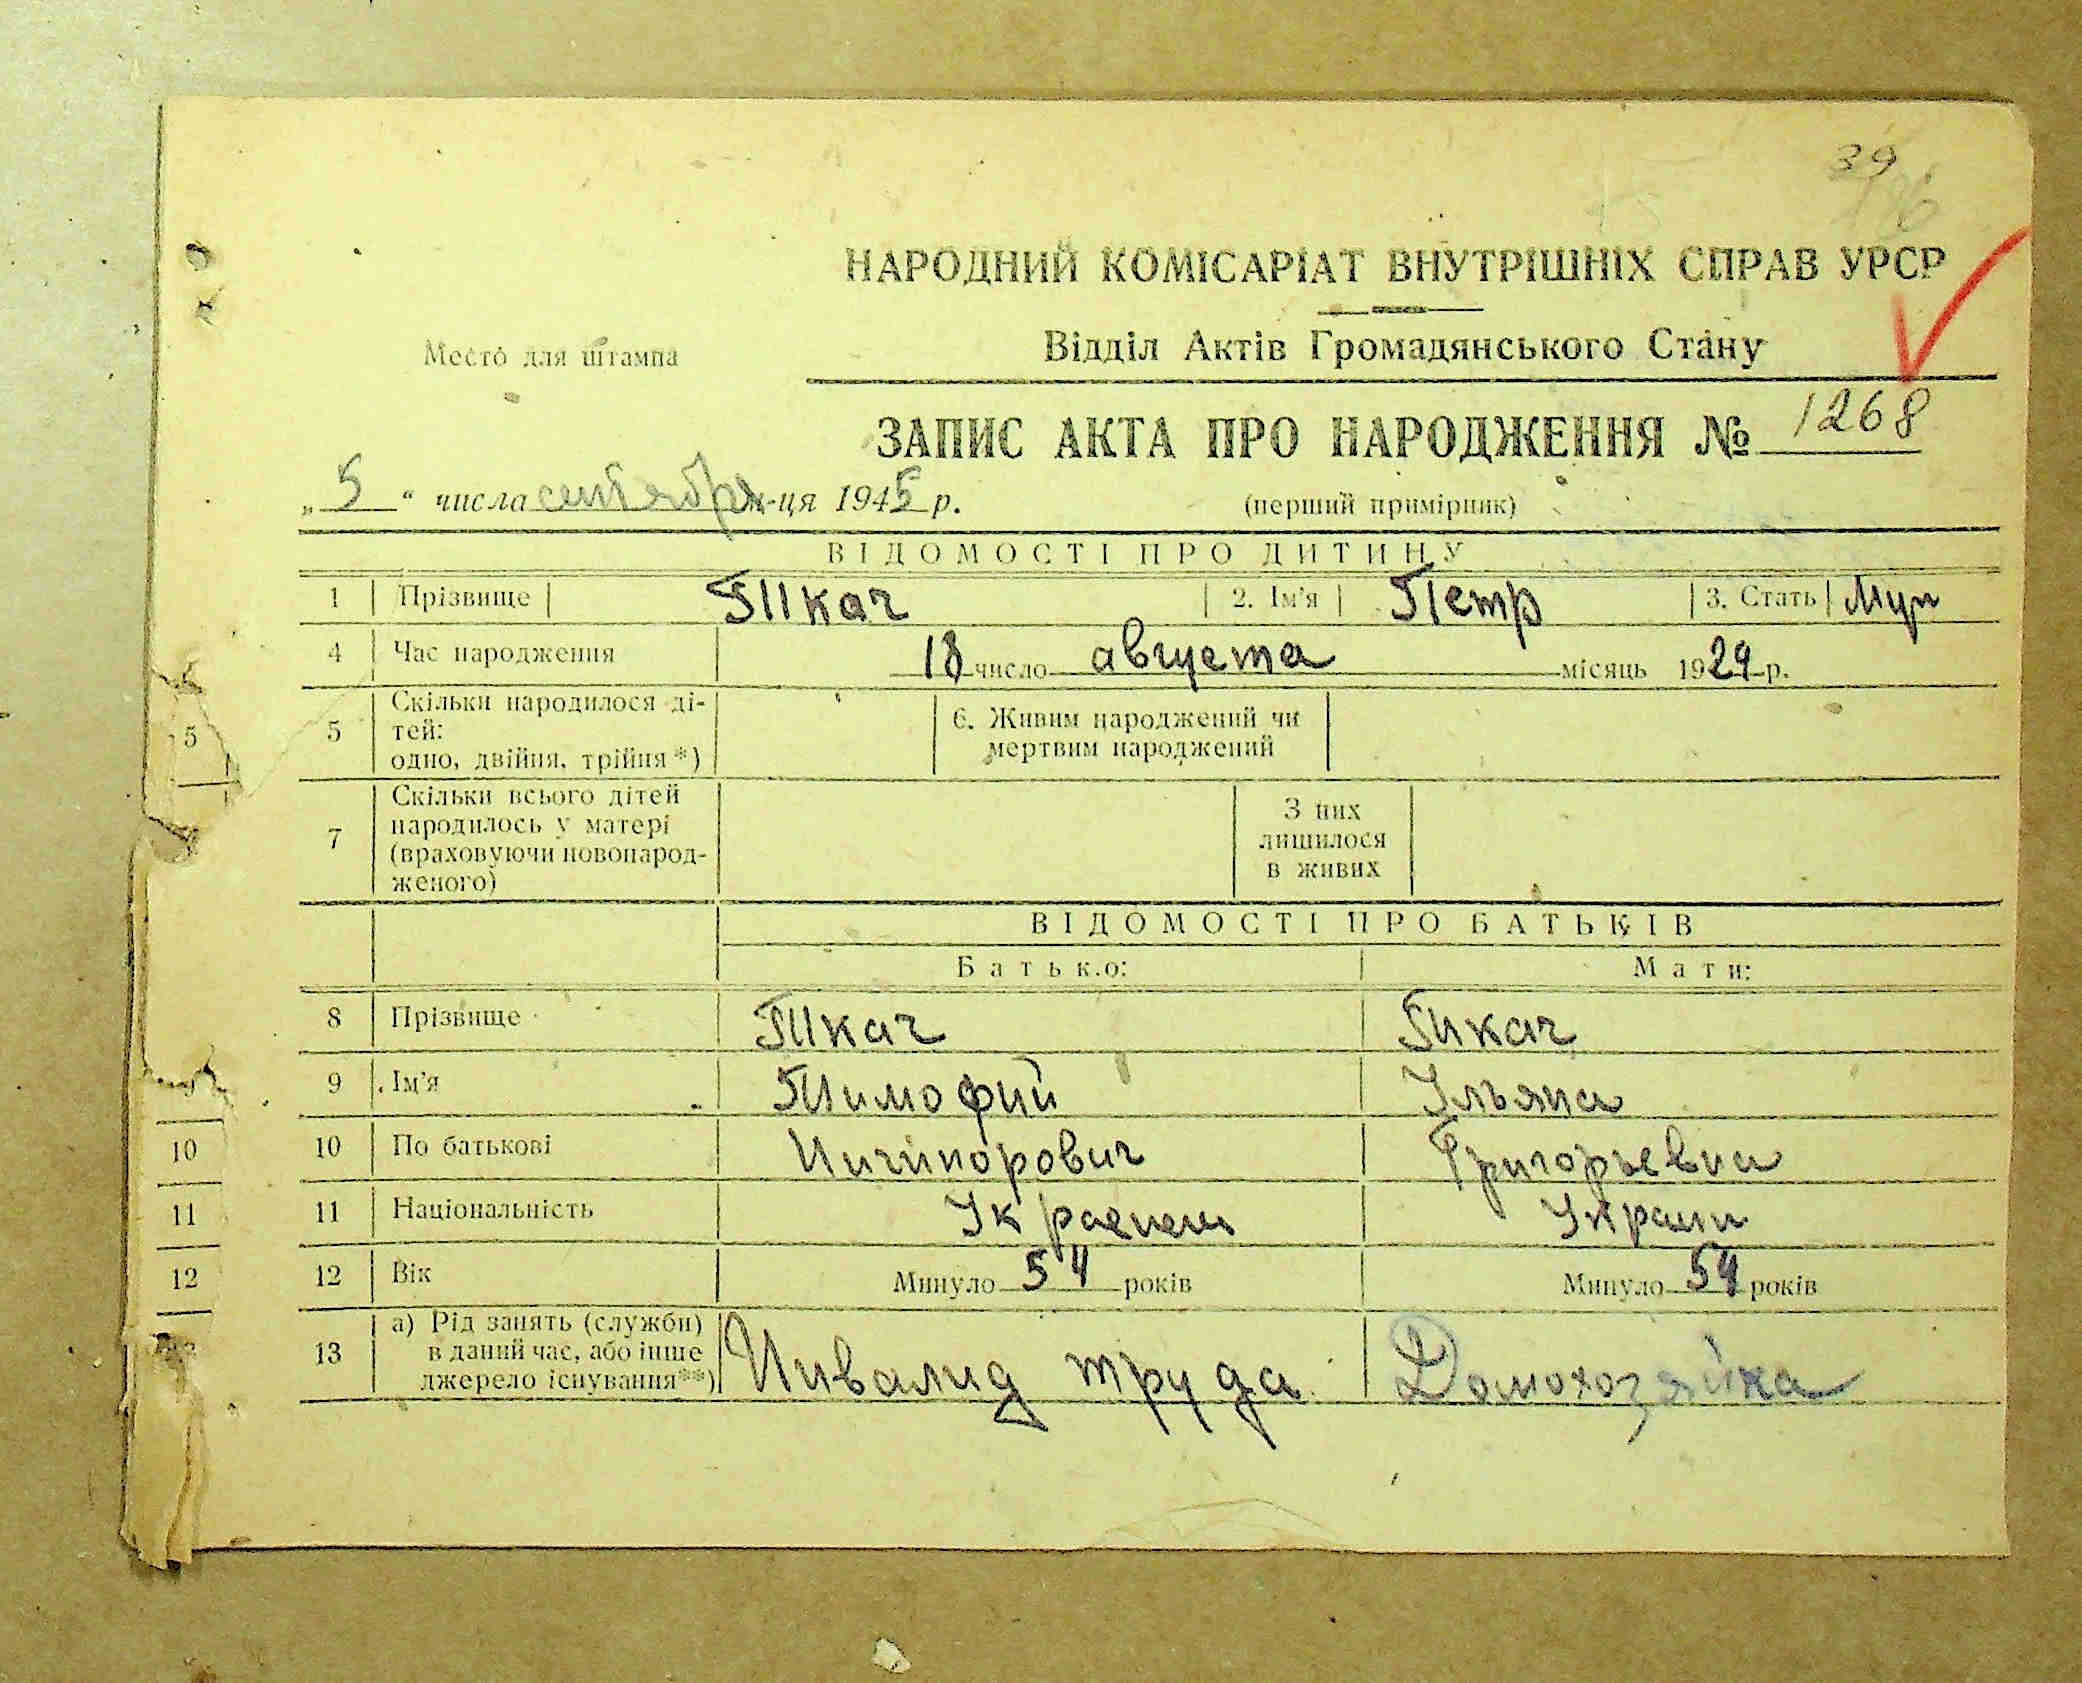 39
НАРОДНИЙ КОМІСАРІАТ ВНУТРІШНІХ СПРАВ УРСР
Место для штампа
Відділ Актів Громадянського Стану
ЗАПИС АКТА ПРО НАРОДЖЕННЯ № 1268
„5“ числа сентября м-ця 1945 р. (перший примірник)
ВІДОМОСТІ ПРО ДИТИНУ
1 Прізвище Ткач 2. Ім'я Петр 3. Стать Муж
4 Час народження 18 число августа місяць 1929 р.
5 Скільки народилося ді-
тей:
одно, двійня, трійня*)
6. Живим народжений чи
мертвим народжений
7 Скільки всього дітей
народилось у матері
(враховуючи новонарод-
женого)
З них
лишилося
в живих
ВІДОМОСТІ ПРО БАТЬКІВ
Батько: Мати:
8 Прізвище Ткач Ткач
9 Ім'я Тимофий Ульяна
10 По батькові Ничипорович Григорьевна
11 Національність Украенец Украин
12 Вік Минуло 54 років Минуло 54 років
13 а) Рід занять (служби)
в даний час, або інше
джерело існування**)
Инвалид труда Домохозяйка
5
10
11
12